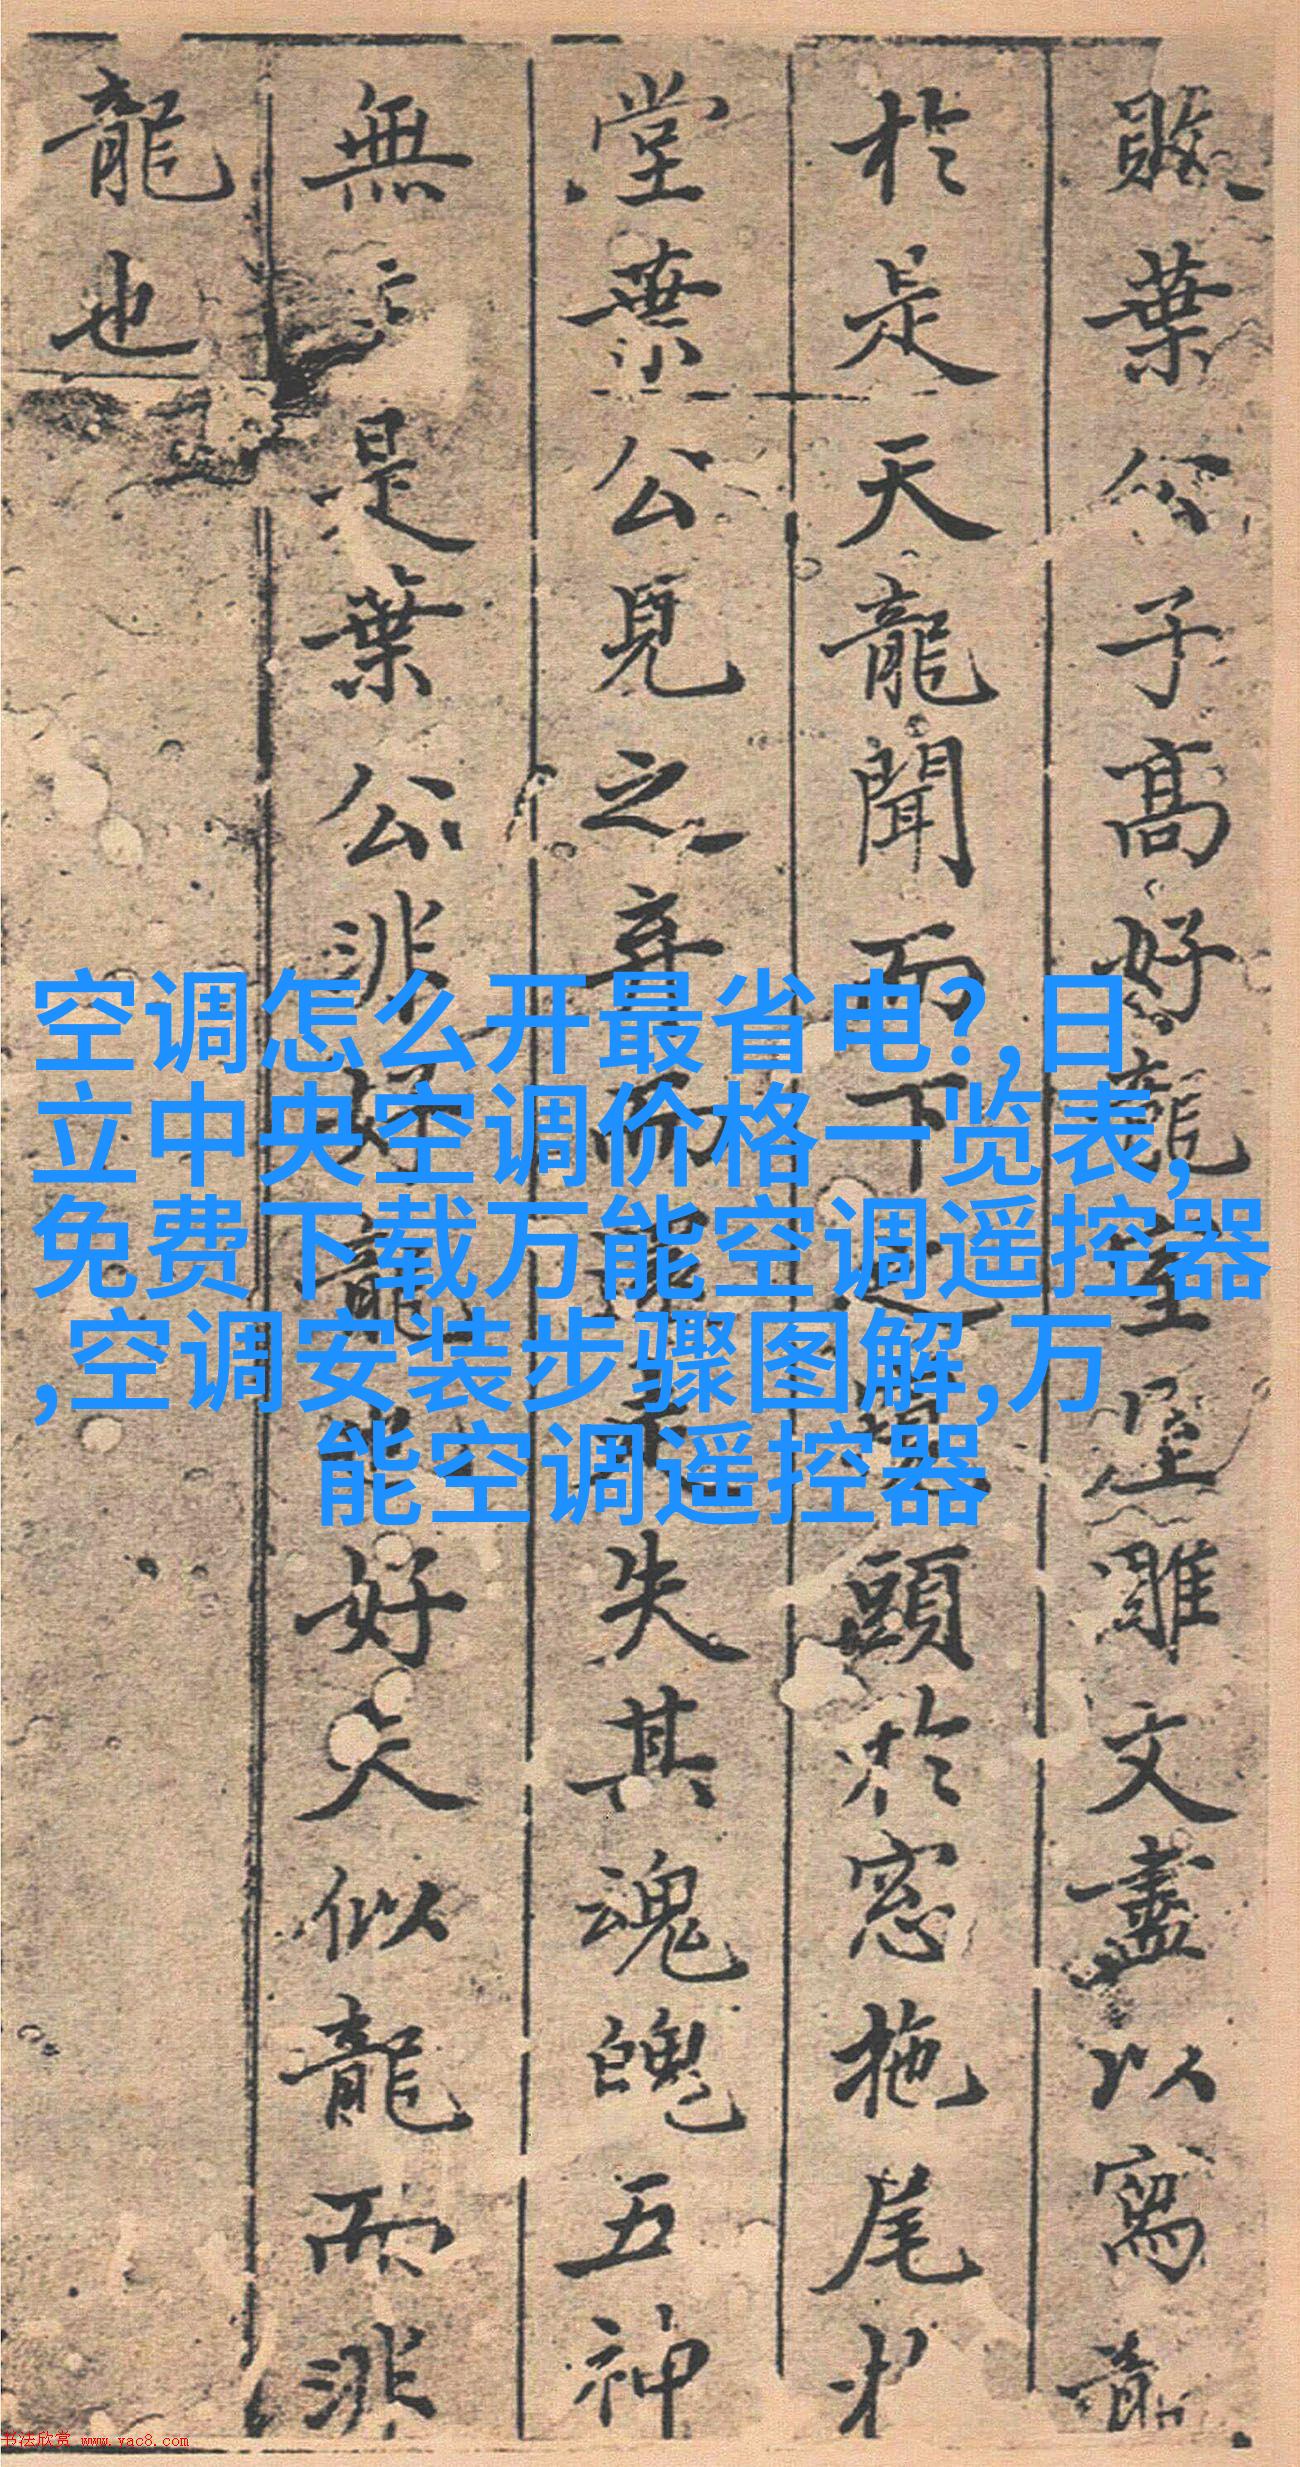 敗葉公子高好龍室雕文盡以寫龍
於是天龍聞而下之頭於窓拖尾
堂葉公見之弃而還走失其魂魄五神
無主是葉公非好龍也好夫似龍而非
龍也
空调怎么开最省电?,日
立中央空调价格一览表,
免费下载万能空调遥控器
,空调安装步骤图解,万
能空调遥控器
书法欣赏 www.yac8.com